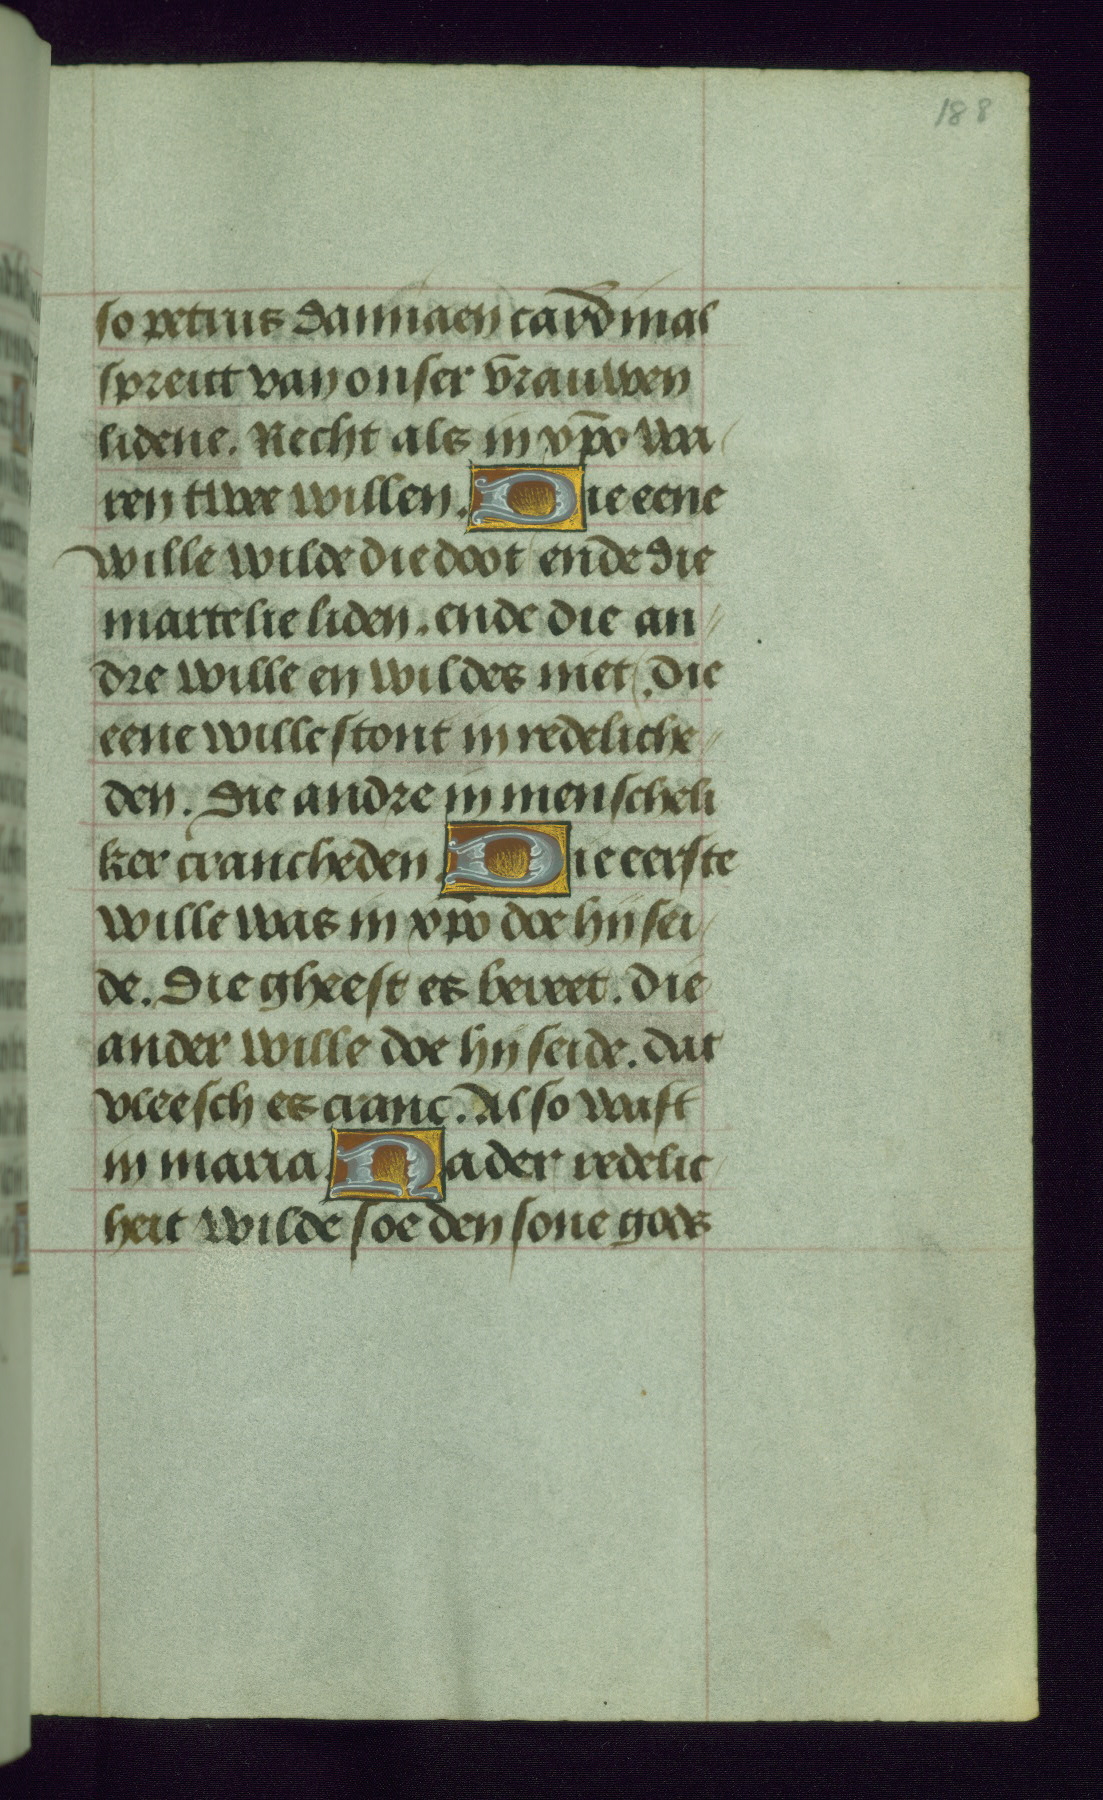 188
so petrus damiaen cardinal
spreict van onser vrauwen
lidene. Recht als in xp̄o wa
ren twee willen. Die eene
wille wilde die doot ende die
martelie liden. ende die an
dre wille en wildes niet. die
eene wille stont in redeliche
den. die andre in menscheli
ker crancheden. Die eerste
wille was in xp̄o doe hij sei
de. Die gheest es bereet. die
ander wille doe hij seide. dat
vleesch es cranc. Also waest
in maria. Na der redelic
heit wilde soe den sone gods